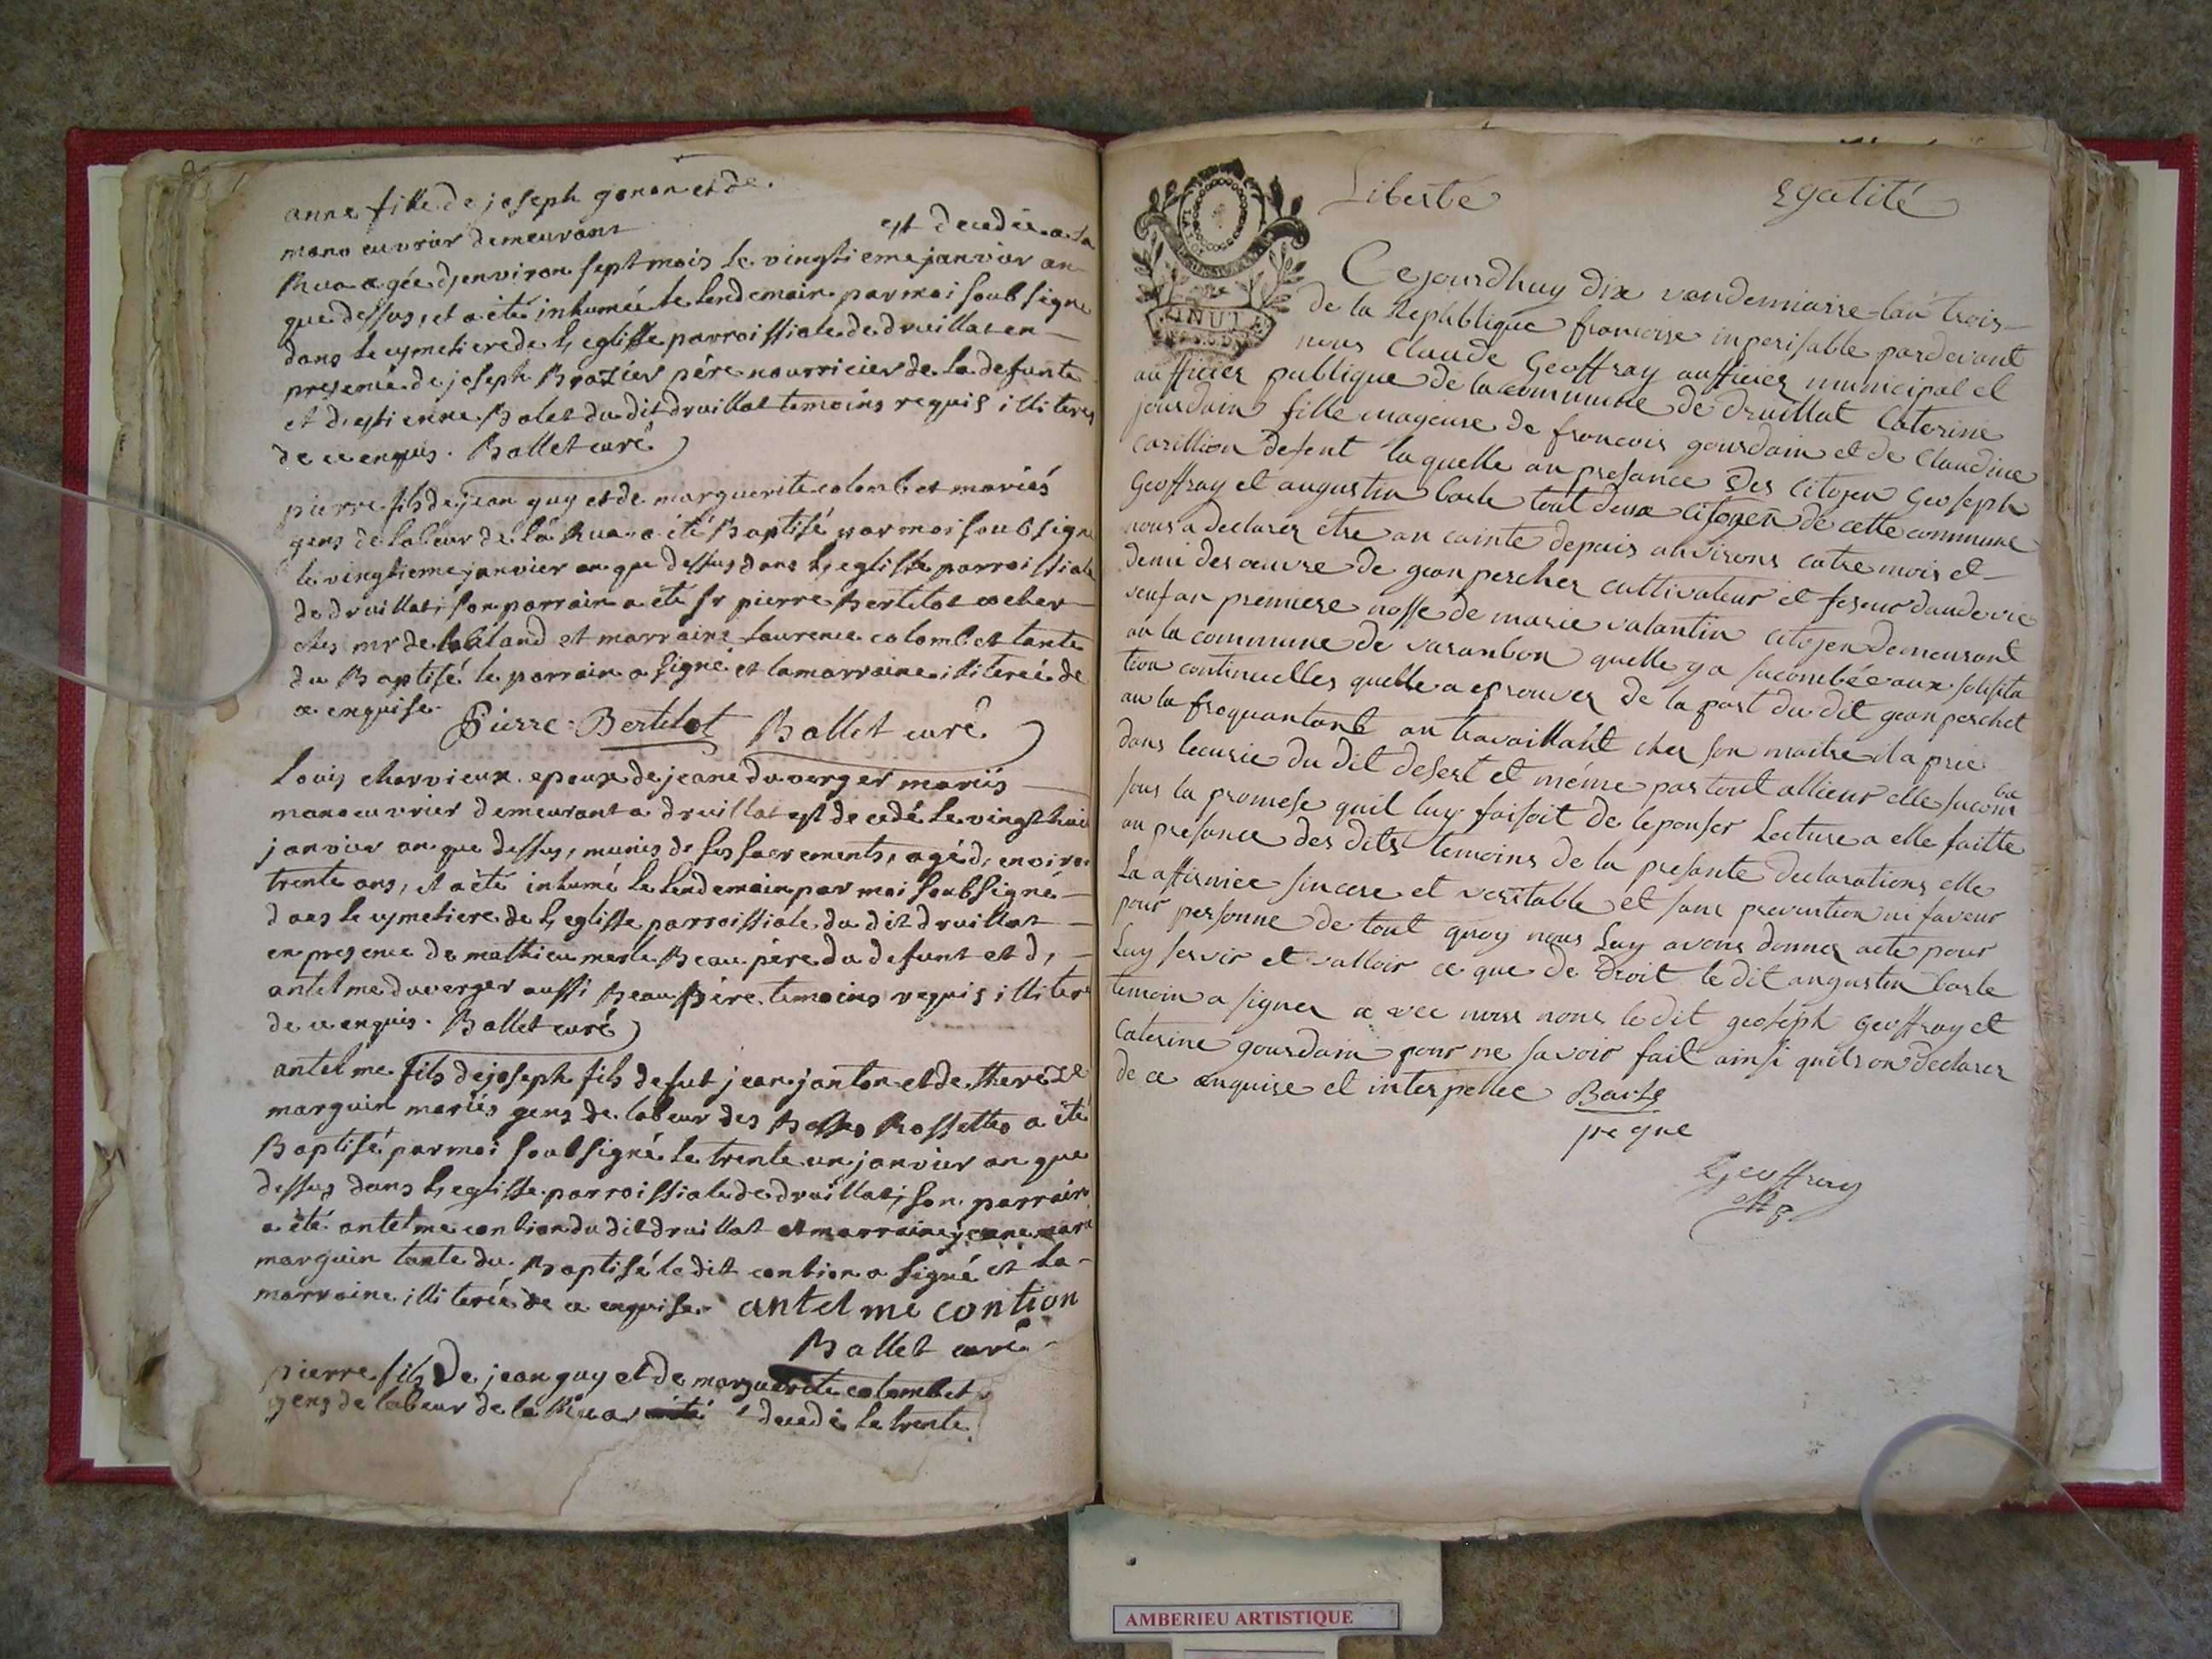 anne fille de joseph gonon et de
mano euvrier demeurant est decedée a la
Rua agée d,environ sept mois le vingtieme janvier an
que dessus, et a été inhumée le lendemain par moi soubsigné
dans le cymetiere de l,eglisse parroissiale de druillat en
presence de joseph Brazier pére nourricier de la defunte
et d'estienne Bolet du dit druillat temoins requis illiteres
de ce enquis. Ballet curé
pierre fils de jean guy et de marguerite colombet mariés
gens de labeur de la Rua a été Baptisé par moi soubsigné
le vingtieme janvier an que dessus dans l,eglisse parroissiale
de druillat, son parrain a été sr pierre Bertelot cocher
ches mr de et marraine laurence colombet tante
du Baptisé le parrain a signé et la marraine illiterée de
ce enquise. Pierre Bertelot Ballet curé
Louis charvieux epoux de jeane duverger mariés
manoeuvrier demeurant a druillat est decedé le vingt huit
janvier an que dessus, munis de ses sacrements, agé d, environ
trente ans, et a été inhumé le lendemain par moi soubsigné
dans le cymetiere de l,eglisse parroissiale du dit druillat
en presence de mathieu merle Beau pére du defunt et d,
antelme duverger aussi Beau frére temoins requis illiteres
de ce enquis. Ballet curé
antelme fils de joseph fils de fut jean janton et de therese
marguin mariés gens de labeur des Rossettes a été
Baptisé par moi soubsigné le trente un janvier an que
dessus dans l,eglisse parroissiale de druillat, son parrain
a été antelme contion du dit druillat et marraine jeane
marguin tante du Baptisé le dit contion a signé et la
marraine illiterée de ce enquise. antelme contion
Ballet curé
pierre fils de jean guy et de marguerite colombet
gens de labeur de la Rua decedé le trente
Liberté Egalité
Cejourdhuy dix vandemiaire lan trois
de la Republique francoise imperisable pardevant
nous Claude Geoffray aufficier municipal et
aufficier publique de la commune de druillat Caterine
jourdain fille mageure de francois gourdain et de Claudine
carillion defent laquelle an presance des citoyen Geoseph
Geoffray et augustin barle tout deux citoyen de cette commune
nous a declarer étre an cainte depuis anvirons catre mois et
demi des oeuvre de gean percher cultivateur et feseur daudevie
veuf an premiere nosse de marie valantin citoyen demeurant
an la commune de varanbon quelle y a sucombée aux solisita
tion continuelles quelle a eprouver de la part du dit gean perchet
an la frequantant an travaillant cher son maitre il a prie
dans lecurie du dit desert et méme par tout allieur elle sucom ba
sous la promese quil luy faisoit de lepouser Lecture a elle faitte
an presance des dits temoins de la presante declarations elle
La affirmée sincere et veritable et sans prevention ni faveur
pour personne de tout quoy nous Luy avons donner acte pour
Luy servir et valloir ce que de Droit le dit angustin barle
temoin a signer avec nous nous le dit geoseph geoffray et
Caterine gourdain pour ne savoir fait ainsi quils on declarer
de ce enquise et interpellee Barle
Geoffray
AMBERIEU ARTISTIQUE